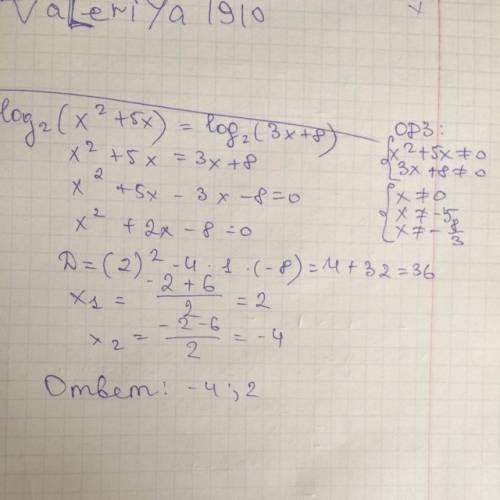 ValeriYa 1910
log₂(x² + 5x) = log₂(3x+8)
x² + 5x = 3x+8
x² + 5x - 3x - 8 = 0
x² + 2x - 8 = 0
D = (2)² - 4 · 1 · (-8) = 4 + 32 = 36
x₁ = (-2 + 6)/2 = 2
x₂ = (-2 - 6)/2 = -4
Ответ: -4; 2
ОРЗ:
x² + 5x ≠ 0
3x + 8 ≠ 0
x ≠ 0
x ≠ -5
x ≠ -8/3